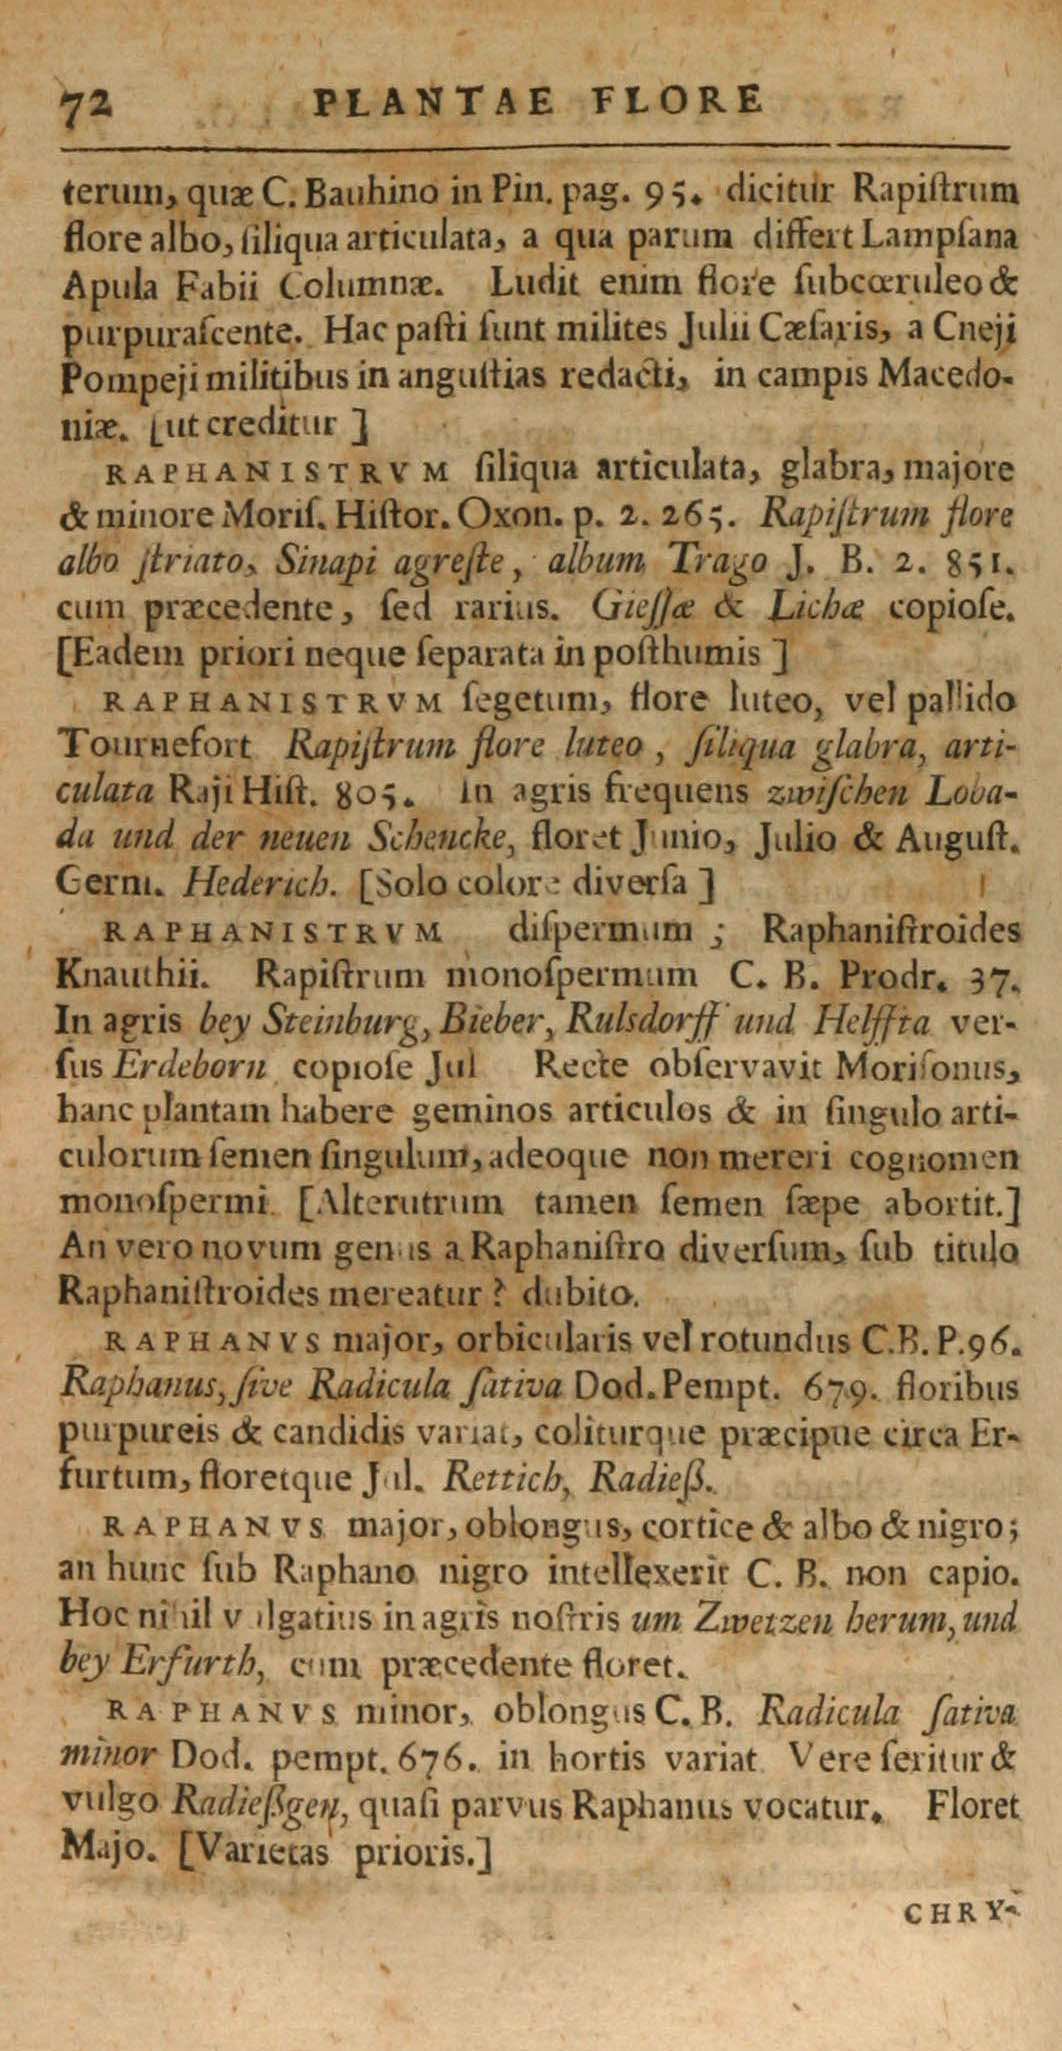 72 PLANTAE FLORE
terum, quæ C. Bauhino in Pin. pag. 95. dicitur Rapiſtrum
flore albo, ſiliqua articulata, a qua parum differt Lampſana
Apula Fabii Columnæ. Ludit enim flore ſubcœruleo &
purpuraſcente. Hac paſti ſunt milites Julii Cæſaris, a Cneji
Pompeji militibus in anguſtias redacti, in campis Macedo-
niæ. [ut creditur ]
RAPHANISTRVM ſiliqua articulata, glabra, majore
& minore Moriſ. Hiſtor. Oxon. p. 2. 265. Rapiſtrum flore
albo ſtriato, Sinapi agreſte, album Trago J. B. 2. 851.
cum præcedente, ſed rarius. Gieſſæ & Lichæ copioſe.
[Eadem priori neque ſeparata in poſthumis ]
RAPHANISTRVM ſegetum, flore luteo, vel pallido
Tournefort Rapiſtrum flore luteo, ſiliqua glabra, arti-
culata Raji Hiſt. 805. in agris frequens zwiſchen Loba-
da und der neuen Schencke, floret Junio, Julio & Auguſt.
Germ. Hederich. [Solo colore diverſa ]
RAPHANISTRVM diſpermum ; Raphaniſtroides
Knauthii. Rapiſtrum monoſpermum C. B. Prodr. 37.
In agris bey Steinburg, Bieber, Rulsdorff und Helffta ver-
ſus Erdeborn copioſe Jul Recte obſervavit Moriſonus,
hanc plantam habere geminos articulos & in ſingulo arti-
culorum ſemen ſingulum, adeoque non mereri cognomen
monoſpermi [Alterutrum tamen ſemen ſæpe abortit.]
An vero novum genus a Raphaniſtro diverſum, ſub titulo
Raphaniſtroides mereatur ? dubito.
RAPHANVS major, orbicularis vel rotundus C.B. P.96.
Raphanus, ſive Radicula ſativa Dod. Pempt. 679. floribus
purpureis & candidis variat, coliturque præcipue circa Er-
furtum, floretque Jul. Rettich, Radieß.
RAPHANVS major, oblongus, cortice & albo & nigro;
an hunc ſub Raphano nigro intellexerit C. B. non capio.
Hoc nihil vulgatius in agris noſtris um Zwetzen herum, und
bey Erfurth, cum præcedente floret.
RAPHANVS minor, oblongus C. B. Radicula ſativa
minor Dod. pempt. 676. in hortis variat Vere ſeritur &
vulgo Radießgen, quaſi parvus Raphanus vocatur. Floret
Majo. [Varietas prioris.]
CHRY-